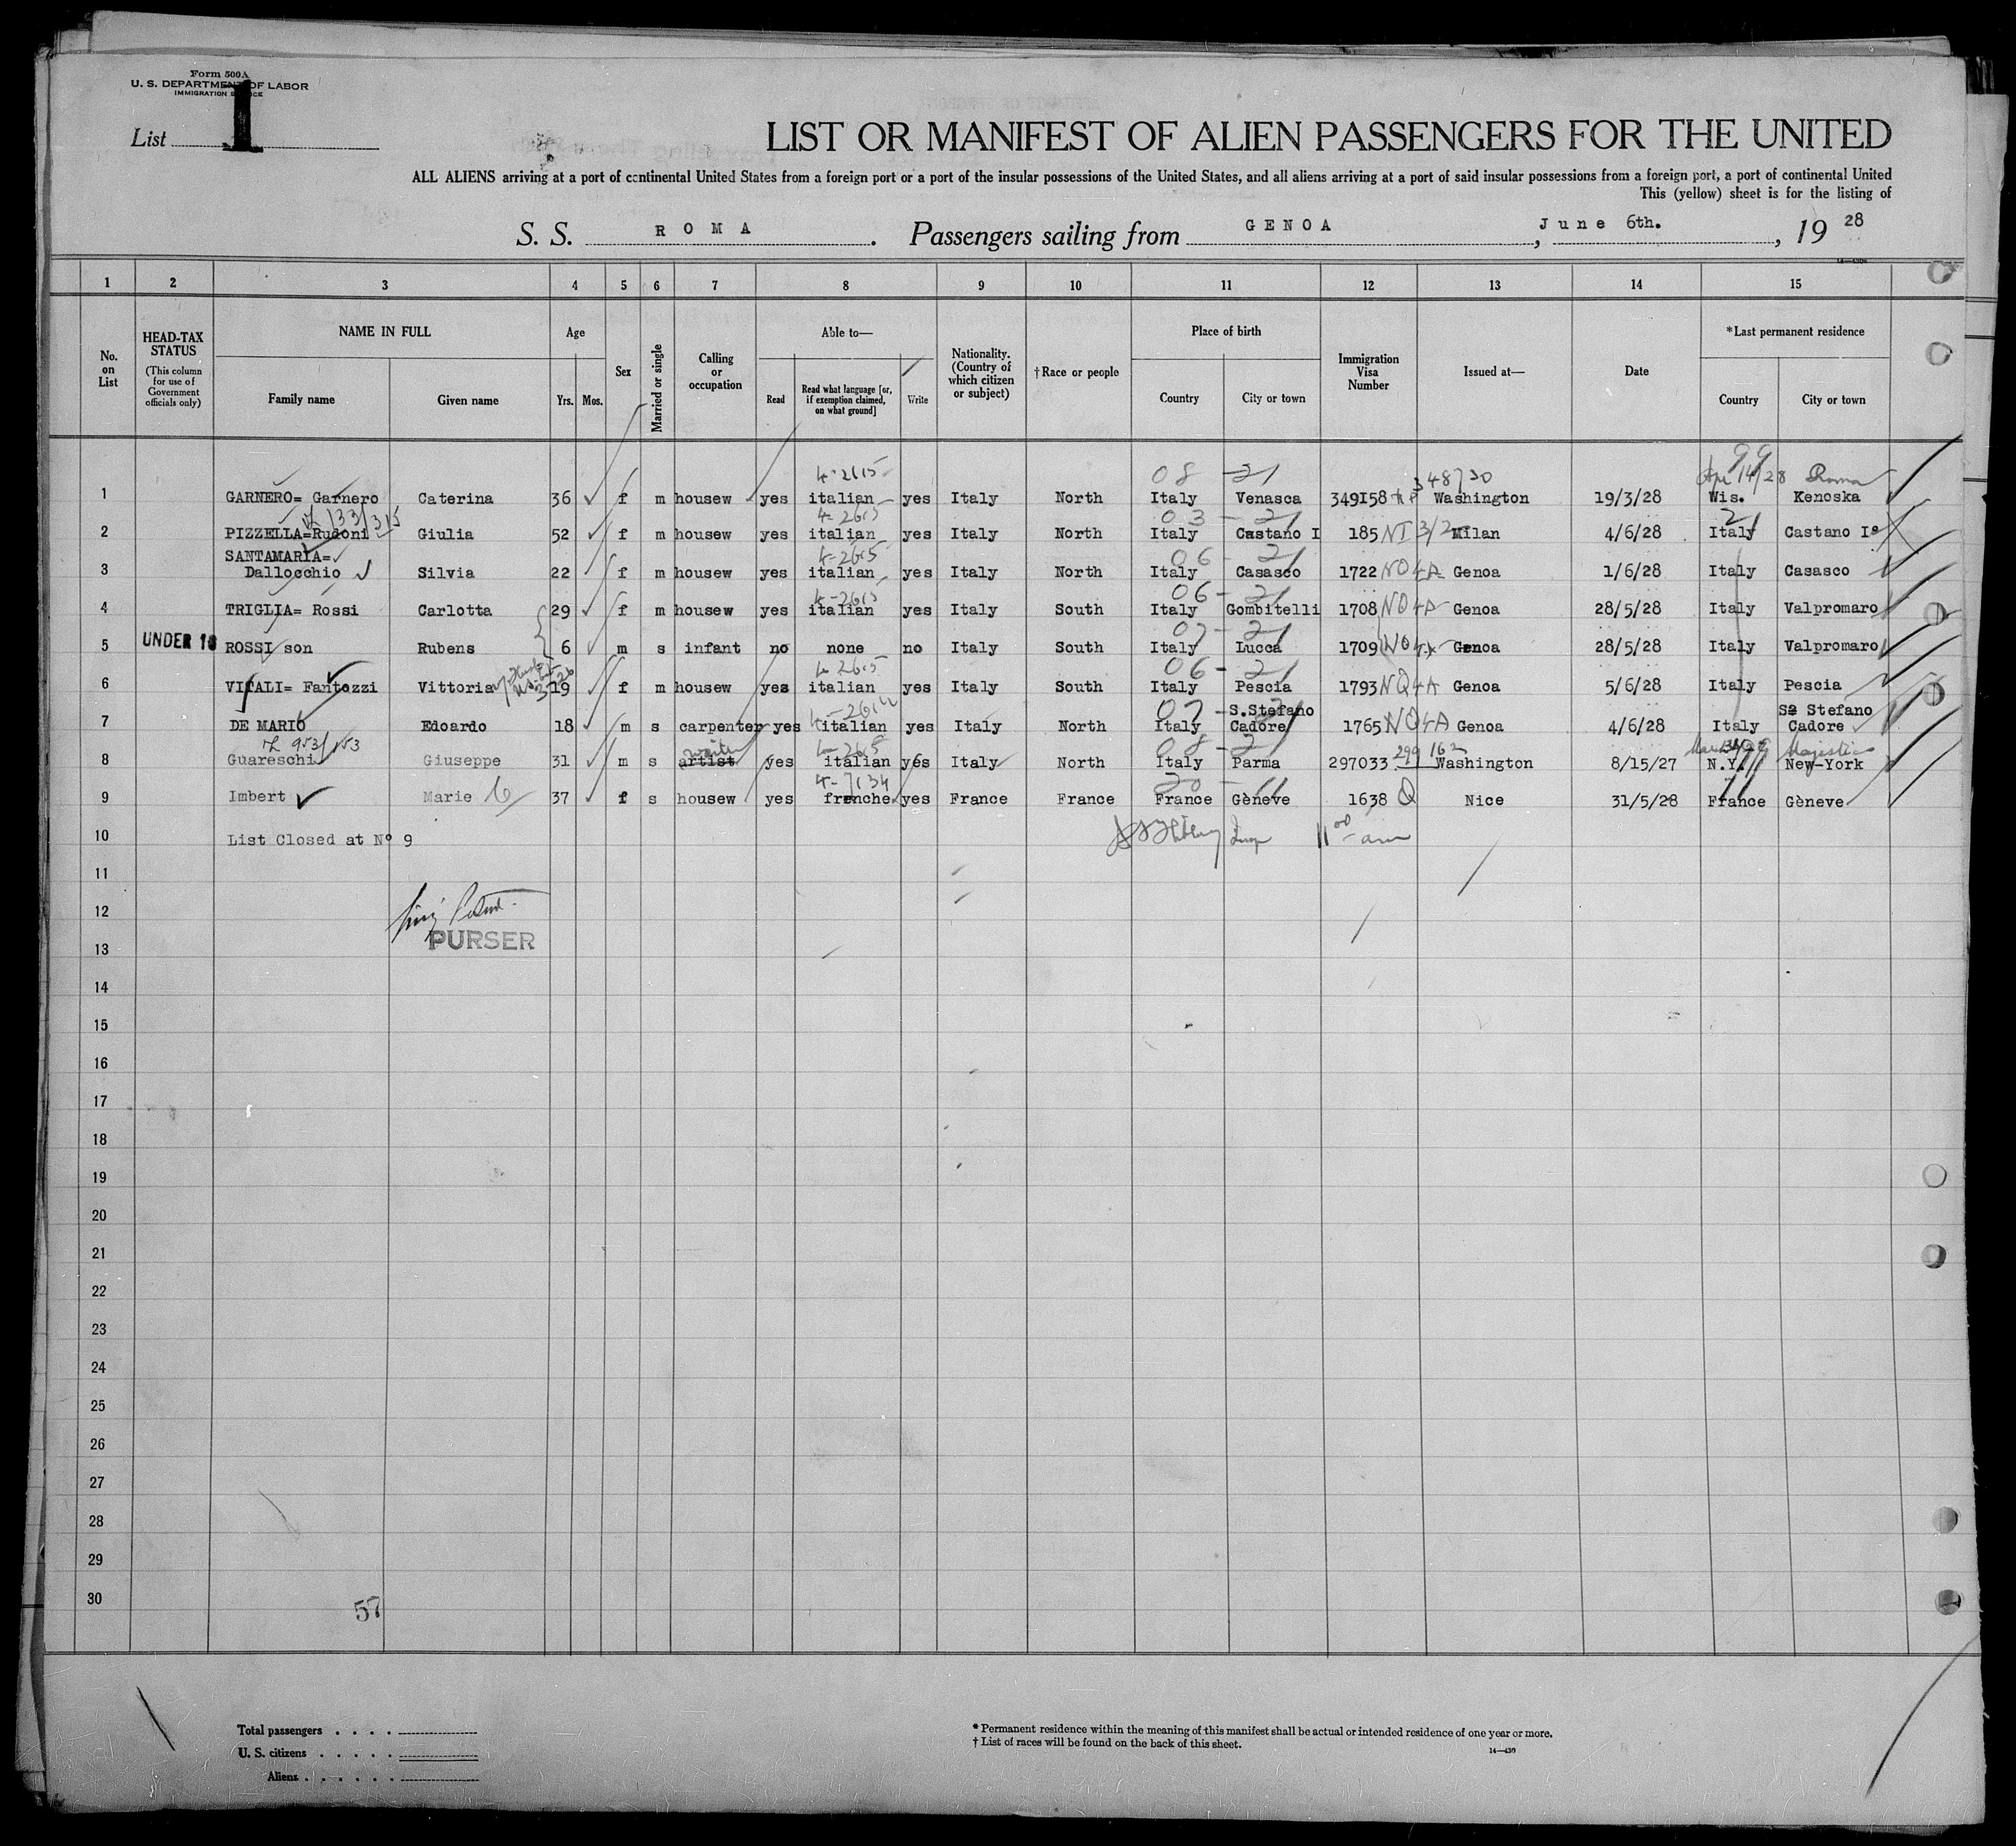 Form 500A
U. S. DEPARTMENT OF LABOR
IMMIGRATION SERVICE
List 1
LIST OR MANIFEST OF ALIEN PASSENGERS FOR THE UNITED
ALL ALIENS arriving at a port of continental United States from a foreign port or a port of the insular possessions of the United States, and all aliens arriving at a port of said insular possessions from a foreign port, a port of continental United
This (yellow) sheet is for the listing of
S. S. ROMA. Passengers sailing from GENOA, June 6th., 19 28
1 2 3 4 5 6 7 8 9 10 11 12 13 14 15
No. on List
HEAD-TAX STATUS
(This column for use of Government officials only)
NAME IN FULL
Family name Given name
Age
Yrs. Mos.
Sex
Married or single
Calling or occupation
Able to—
Read Read what language [or, if exemption claimed, on what ground] Write
Nationality. (Country of which citizen or subject)
†Race or people
Place of birth
Country City or town
Immigration Visa Number
Issued at—
Date
*Last permanent residence
Country City or town
4-2615 08 - 21 348730 99 Apr 14/28 Roma
1 GARNERO= Garnero Caterina 36 f m housew yes italian yes Italy North Italy Venasca 349158 Washington 19/3/28 Wis. Kenoska
133/315 4-2615 03 - 21 21
2 PIZZELLA=Rudoni Giulia 52 f m housew yes italian yes Italy North Italy Castano I 185 NI 3/2 Milan 4/6/28 Italy Castano Iº
SANTAMARIA= 4-2615 06 - 21
3 Dallocchio Silvia 22 f m housew yes italian yes Italy North Italy Casasco 1722 NO4A Genoa 1/6/28 Italy Casasco
4-2615 06 - 21
4 TRIGLIA= Rossi Carlotta 29 f m housew yes italian yes Italy South Italy Gombitelli 1708 NO4A Genoa 28/5/28 Italy Valpromaro
07 - 21
5 UNDER 16 ROSSI son Rubens 6 m s infant no none no Italy South Italy Lucca 1709 NO4A Genoa 28/5/28 Italy Valpromaro
4-2615 06 - 21
6 VITALI= Fantozzi Vittoria 19 f m housew yes italian yes Italy South Italy Pescia 1793 NQ4A Genoa 5/6/28 Italy Pescia
4-2614 07 - 21 S.Stefano Sº Stefano
7 DE MARIO Edoardo 18 m s carpenter yes italian yes Italy North Italy Cadore 1765 NQ4A Genoa 4/6/28 Italy Cadore
953/153 waiter 4-2615 08 - 21 299162 Majestic
8 Guareschi Giuseppe 31 m s artist yes italian yes Italy North Italy Parma 297033 Washington 8/15/27 N.Y. New-York
4-7134 20 - 11
9 Imbert Marie 37 f s housew yes frenche yes France France France Gèneve 1638 Q Nice 31/5/28 France Gèneve
10 List Closed at Nº 9 11 00 am
11
12
PURSER
13
14
15
16
17
18
19
20
21
22
23
24
25
26
27
28
29
30
57
Total passengers . . . .
U. S. citizens . . . . .
Aliens . . . . . .
* Permanent residence within the meaning of this manifest shall be actual or intended residence of one year or more.
† List of races will be found on the back of this sheet.
14—430